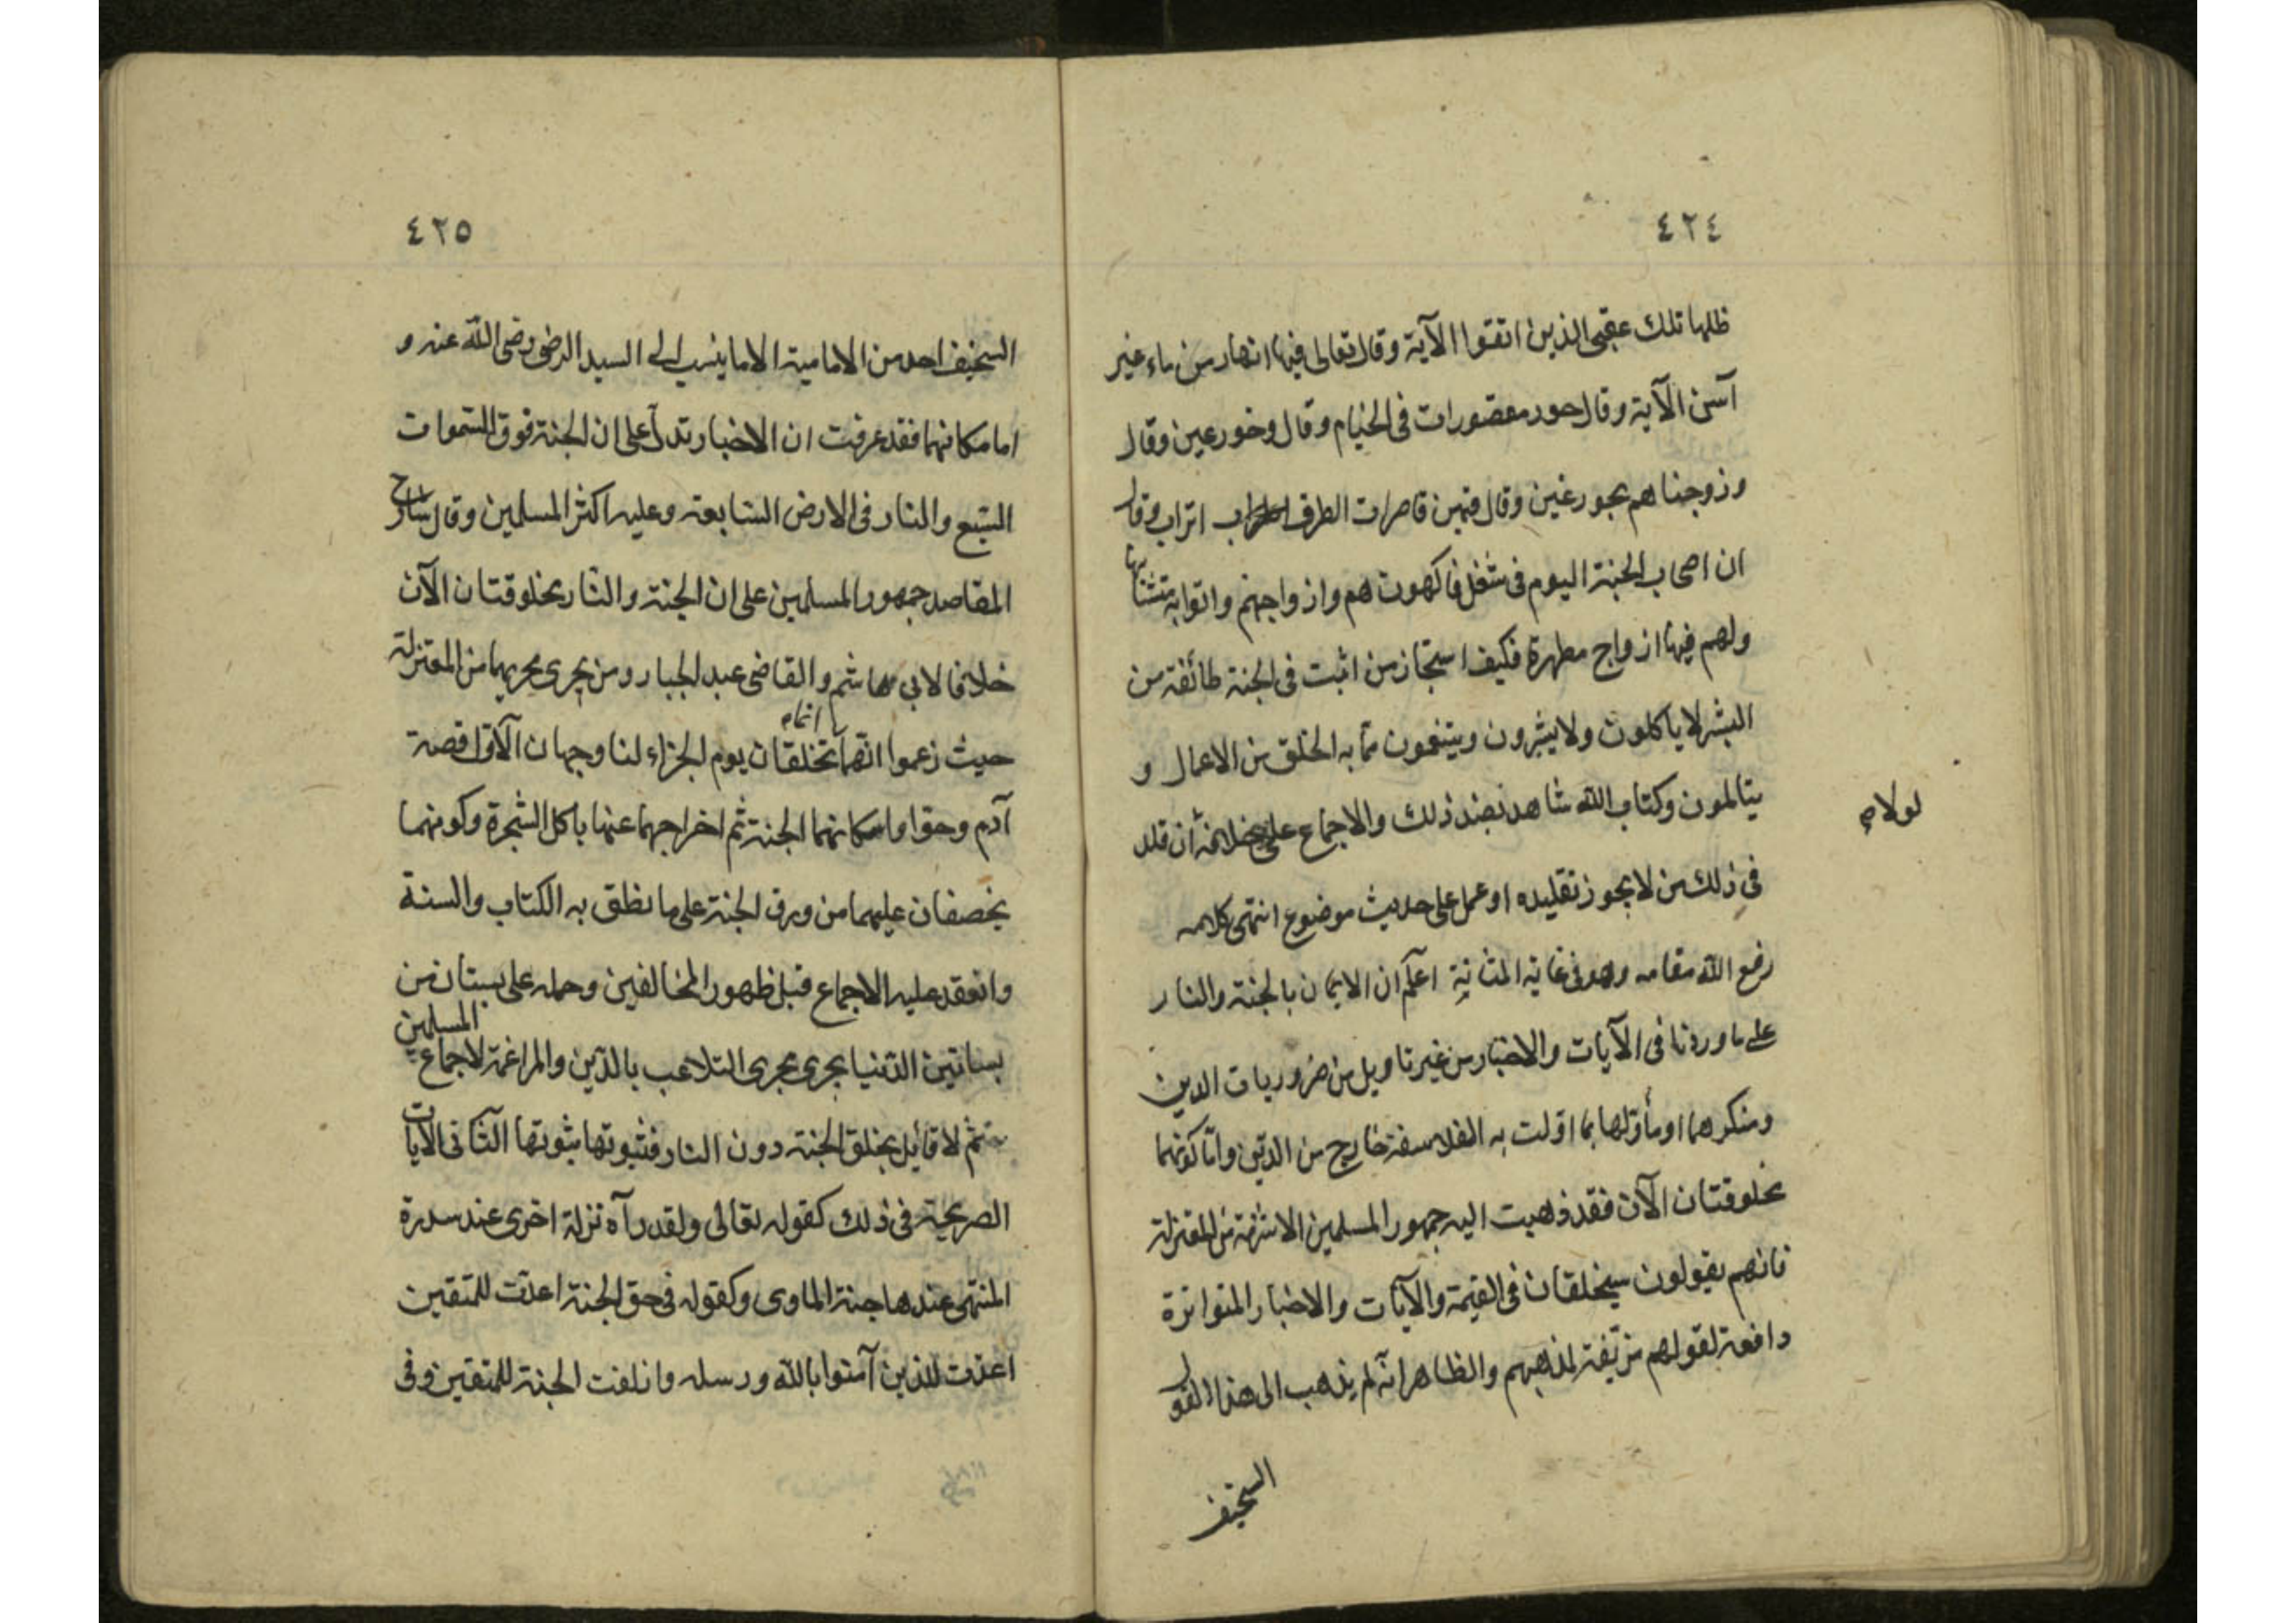 ٤٢٤
ظلها تلك عقبى الذين اتقوا الآية وقال تعالى فيها انهار من ماء غير
آسن الآية وقال حور مقصورات فى الخيام وقال وحور عين وقال
وزوجناهم بحور عين وقال فيهن قاصرات الطرف اتراب وقال
ان اصحاب الجنة اليوم فى شغل فاكهون هم وازواجهم واتوا به متشابها
ولهم فيها ازواج مطهرة فكيف استجاز من اثبت فى الجنة طائفة من
البشر لا ياكلون ولا يشربون ويتنعمون مما به الخلق من الاعمال و
يتالمون وكتاب الله شاهد بضد ذلك والاجماع على خلافه ان قلد
لولا
فى ذلك من لا يجوز تقليده او عمل على حديث موضوع انتهى كلامه
رفع الله مقامه وهو فى غاية المتانة اعلم ان الايمان بالجنة والنار
على ما وردتا فى الآيات والاخبار من غير تاويل من ضروريات الدين
ومنكرهما او مأولها بما اولت به الفلاسفة خارج من الدين واما كونهما
مخلوقتان الآن فقد ذهبت اليه جمهور المسلمين الا شرذمة من المعتزلة
فانهم يقولون سيخلقان فى القيمة والآيات والاخبار المتواترة
دافعة لقولهم مزيفة لمذهبهم والظاهر انه لم يذهب الى هذا القول
السخيف
٤٢٥
السخيف احد من الامامية الا ما ينسب الى السيد الرضى رضى الله عنه و
اما مكانهما فقد عرفت ان الاخبار تدل على ان الجنة فوق السموات
السبع والنار فى الارض السابعة وعليه اكثر المسلمين وقال شارح
المقاصد جمهور المسلمين على ان الجنة والنار مخلوقتان الآن
خلافا لابى هاشم والقاضى عبد الجبار ومن يجرى مجريهما من المعتزلة
حيث زعموا انهما تخلقان يوم الجزاء لنا وجهان الاول قصة
آدم وحوا واسكانهما الجنة ثم اخراجهما عنها باكل الشجرة وكونهما
يخصفان عليهما من ورق الجنة على ما نطق به الكتاب والسنة
وانعقد عليه الاجماع قبل ظهور المخالفين وحمله على بستان من
بساتين الدنيا يجرى مجرى التلاعب بالدين والمراغمة لاجماع المسلمين
ثم لا قايل بخلق الجنة دون النار فثبوتها ثبوتها الثانى الآيات
الصريحة فى ذلك كقوله تعالى ولقد رآه نزلة اخرى عند سدرة
المنتهى عندها جنة الماوى وكقوله فى حق الجنة اعدت للمتقين
اعدت للذين آمنوا بالله ورسله وازلفت الجنة للمتقين وفى